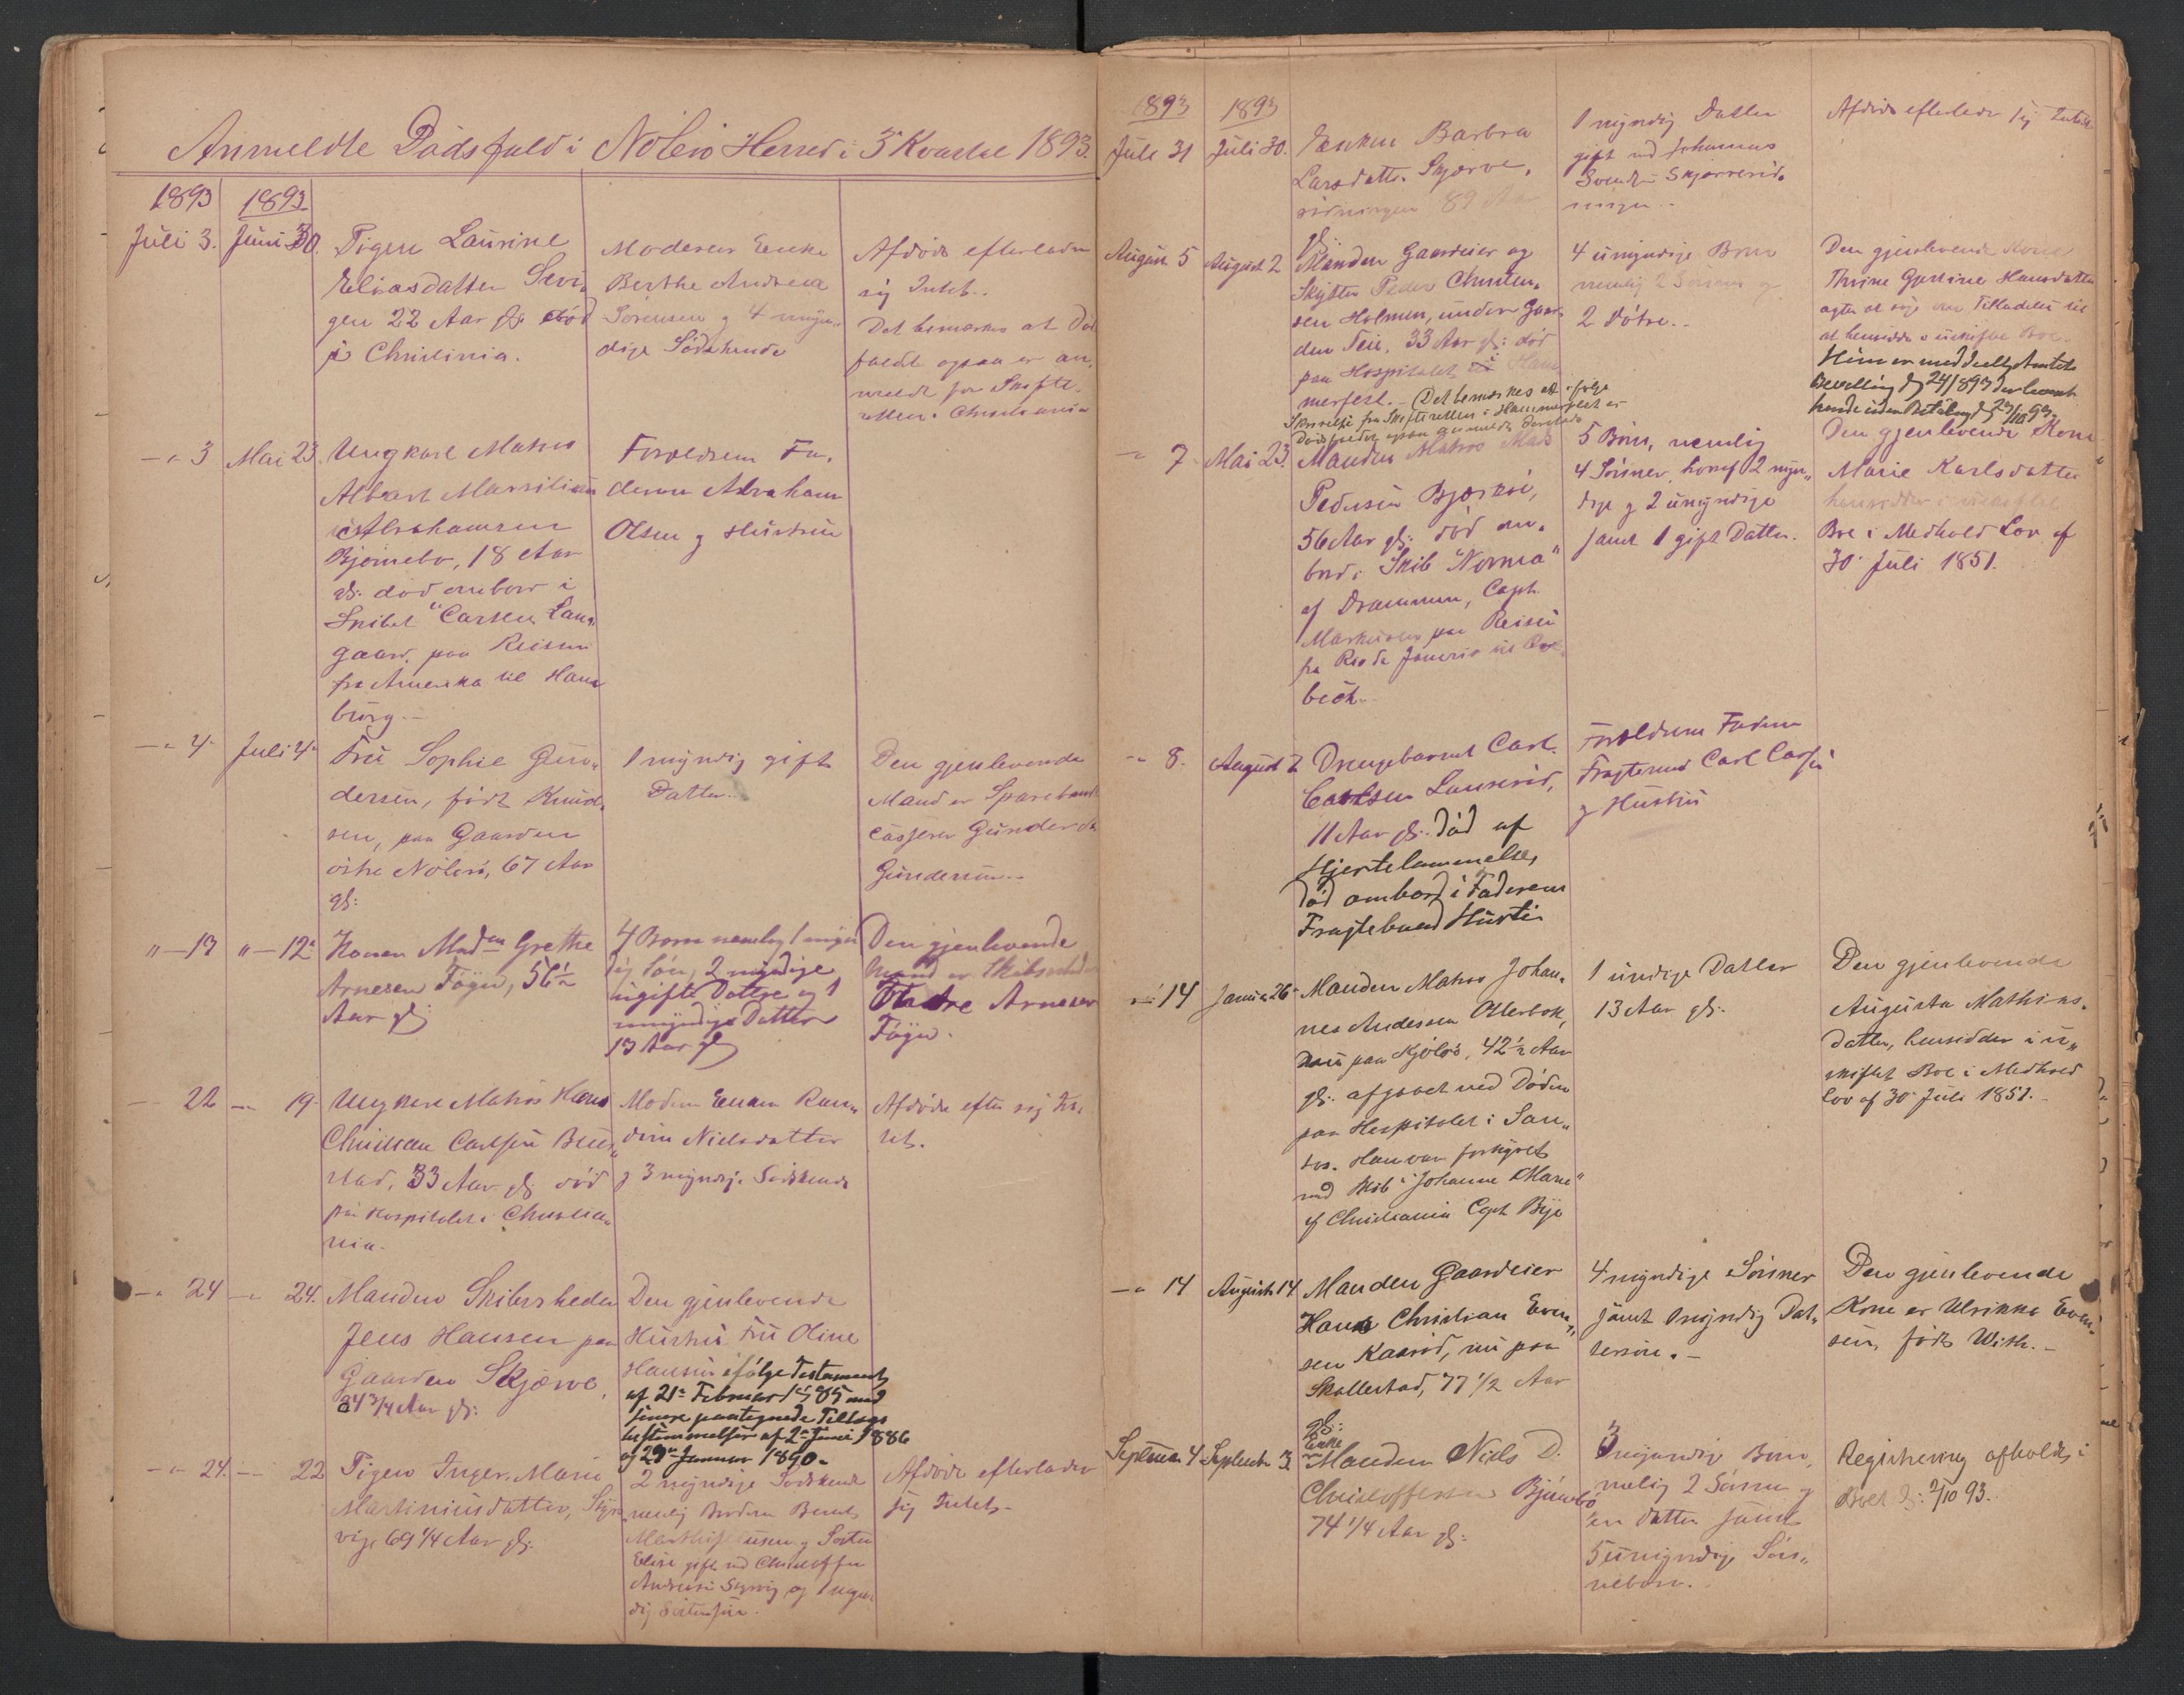 Anmeldte Dødsfald i Nøterø Herred i 3 Kvartal 1893.
1893 1893
Juli 3. Juni 30. Pigen Laurine
Eliasdatter
gen 22 Aar gl. død
i Christinia.
Moderen Enke
Berthe Andrea
Sørensen og 4 myn„
dige Sødskende
Afdøde efterlader
sig Intet.
Det bemærkes at Døds
faldet ogsaa er an„
meldt for Skifte„
retten i Christiania
-"- 3 Mai 23. Ungkarl Matros
Albert Marsilius
Abrahamsen
Bjørnebo, 18 Aar
gl: død ombord i
Skibet "Carsten Lan„
gaard, paa Reisen
fra Amerika til Ham
burg.-
Foreldrene Fa„
deren Abraham
Olsen og Hustru
-"- 4 Juli 4 Fru Sophie Gun„
dersen, født Knud„
sen, paa Gaarden
østre Nøterø, 67 Aar
gl:
1 myndig gift
Datter.
Den gjenlevende
Mand er Sparebank
casserer Gunder
Gundersen.-
"- 13 "- 12 Konen Madm Grethe
Arnesen Føyn, 56½
Aar gl
4 Børn nemlig 1 myn
dig Søn, 2 myndige
ugifte Døttre og 1
umyndige Datter
13 Aar gl
Den gjenlevende
Mand er Skibsreder
Arnesen
Føyn.
- 22 -"- 19 Ungkarl Matros Hans
Christian Carlsen
stad, 33 Aar gl: død
paa Hospitalet i Christia„
nia.
Moderen Enken
Nielsdatter
og 3 myndige Sødskende
Afdøde efter sig In„
tet.
-"- 24 -"- 24. Manden Skibsrheder
Jens Hansen paa
Gaarden Skjærve,
84 3/4 Aar gl:
Den gjenlevende
Hustru Fru Oline
Hansen ifølge Testament
af 21 Februar 1885 med
senere paategnede Tillægs
bestemmelser af 2 Juni 1886
og 29 Januar 1890.
-"- 24. -"- 22 Pigen Inger Marie
Martiniusdatter,
vig, 69 1/4 Aar gl:
2 myndige Sødskende
nemlig Broderen Bernt
og Søster
Elise gift med Christoffer
Andersen og 1 myn
dig
Afdøde efterlader
sig Intet.
1893 1893
Juli 31 Juli 30. Enken Barbra
Larsdatter Skjærve„
rødningen 89 Aar
gl:
1 myndig Datter
gift med Johannes
Svendsen Skjærverød„
ningen.-
Afdøde efterlader sig Intet
August 5 August 2 Manden Gaardeier og
Skytter Peder Christen„
sen Holmen, under Gaar
den Teie, 33 Aar gl: død
paa Hospitalet i Ham
merfest.- Det bemærkes at ifølge
Skrivelse fra Skifteretten i Hammerfest er
Dødsfaldet ogsaa anmeldt dersteds
4 umyndige Børn
nemlig 2 Sønner og
2 Døtre.-
Den gjenlevende Kone
Thrine Gurine Hansdatter
agter at søge om Tilladelse til
at hensidde i uskiftet Bo.
Hun er meddelt Amtets
Bevilling
-"- 7 Mai 23. Manden Matros Mads
Pedersen Bjerkø,
56 Aar gl: død om„
bord i Skib "Norma"
af Drammen, Capt.
paa Reisen
fra Rio de Janerio til
5 Børn, nemlig
4 Sønner, hvoraf 2 myn„
dige og 2 umyndige
samt 1 gift Datter.
Den gjenlevende Kone
Marie Karlsdatter
hensidder i uskiftet
Bo i Medhold Lov af
30 Juli 1851.
-"- 8. August 7 Drengebarnet Carl
Carlsen
11 Aar gl: død af
Hjertelammelse,
død ombord i Faderens
Foreldrene Faderen
Fragtemand Carl
og Hustru
-"- 14 Januar 26 Manden Matros Johan„
nes Andersen Otterbek,
nu paa Kjøløs, 42½ Aar
gl: afgaaet ved Døden
paa Hospitalet i San„
tos. Han var forhyret
med Skib "Johanne Marie"
af Christiania Capt Bye
1 undige Datter
13 Aar gl:
Den gjenlevende
Augusta Mathias„
datter, hensidder i u„
skiftet Bo i Medhold
Lov af 30 Juli 1851.-
-"- 14 August 14 Manden Gaardeier
Hans Christian Even„
sen Kaarød, nu paa
Skallestad, 77 1/2 Aar
gl:
4 myndige Sønner
samt 1 myndig Dat„
tersøn.-
Den gjenlevende
Kone er Ulrikke Even„
sen, født With.-
September 4 September 3. Enke
Manden Niels D.
Christoffersen Bjørnebo
74 1/4 Aar gl:
3 myndige Børn,
nemlig 2 Sønner og
en Datter samt
5 umyndige Søn„
nebørn.
Registrering afholdt i
Boet d: 2/10 93.